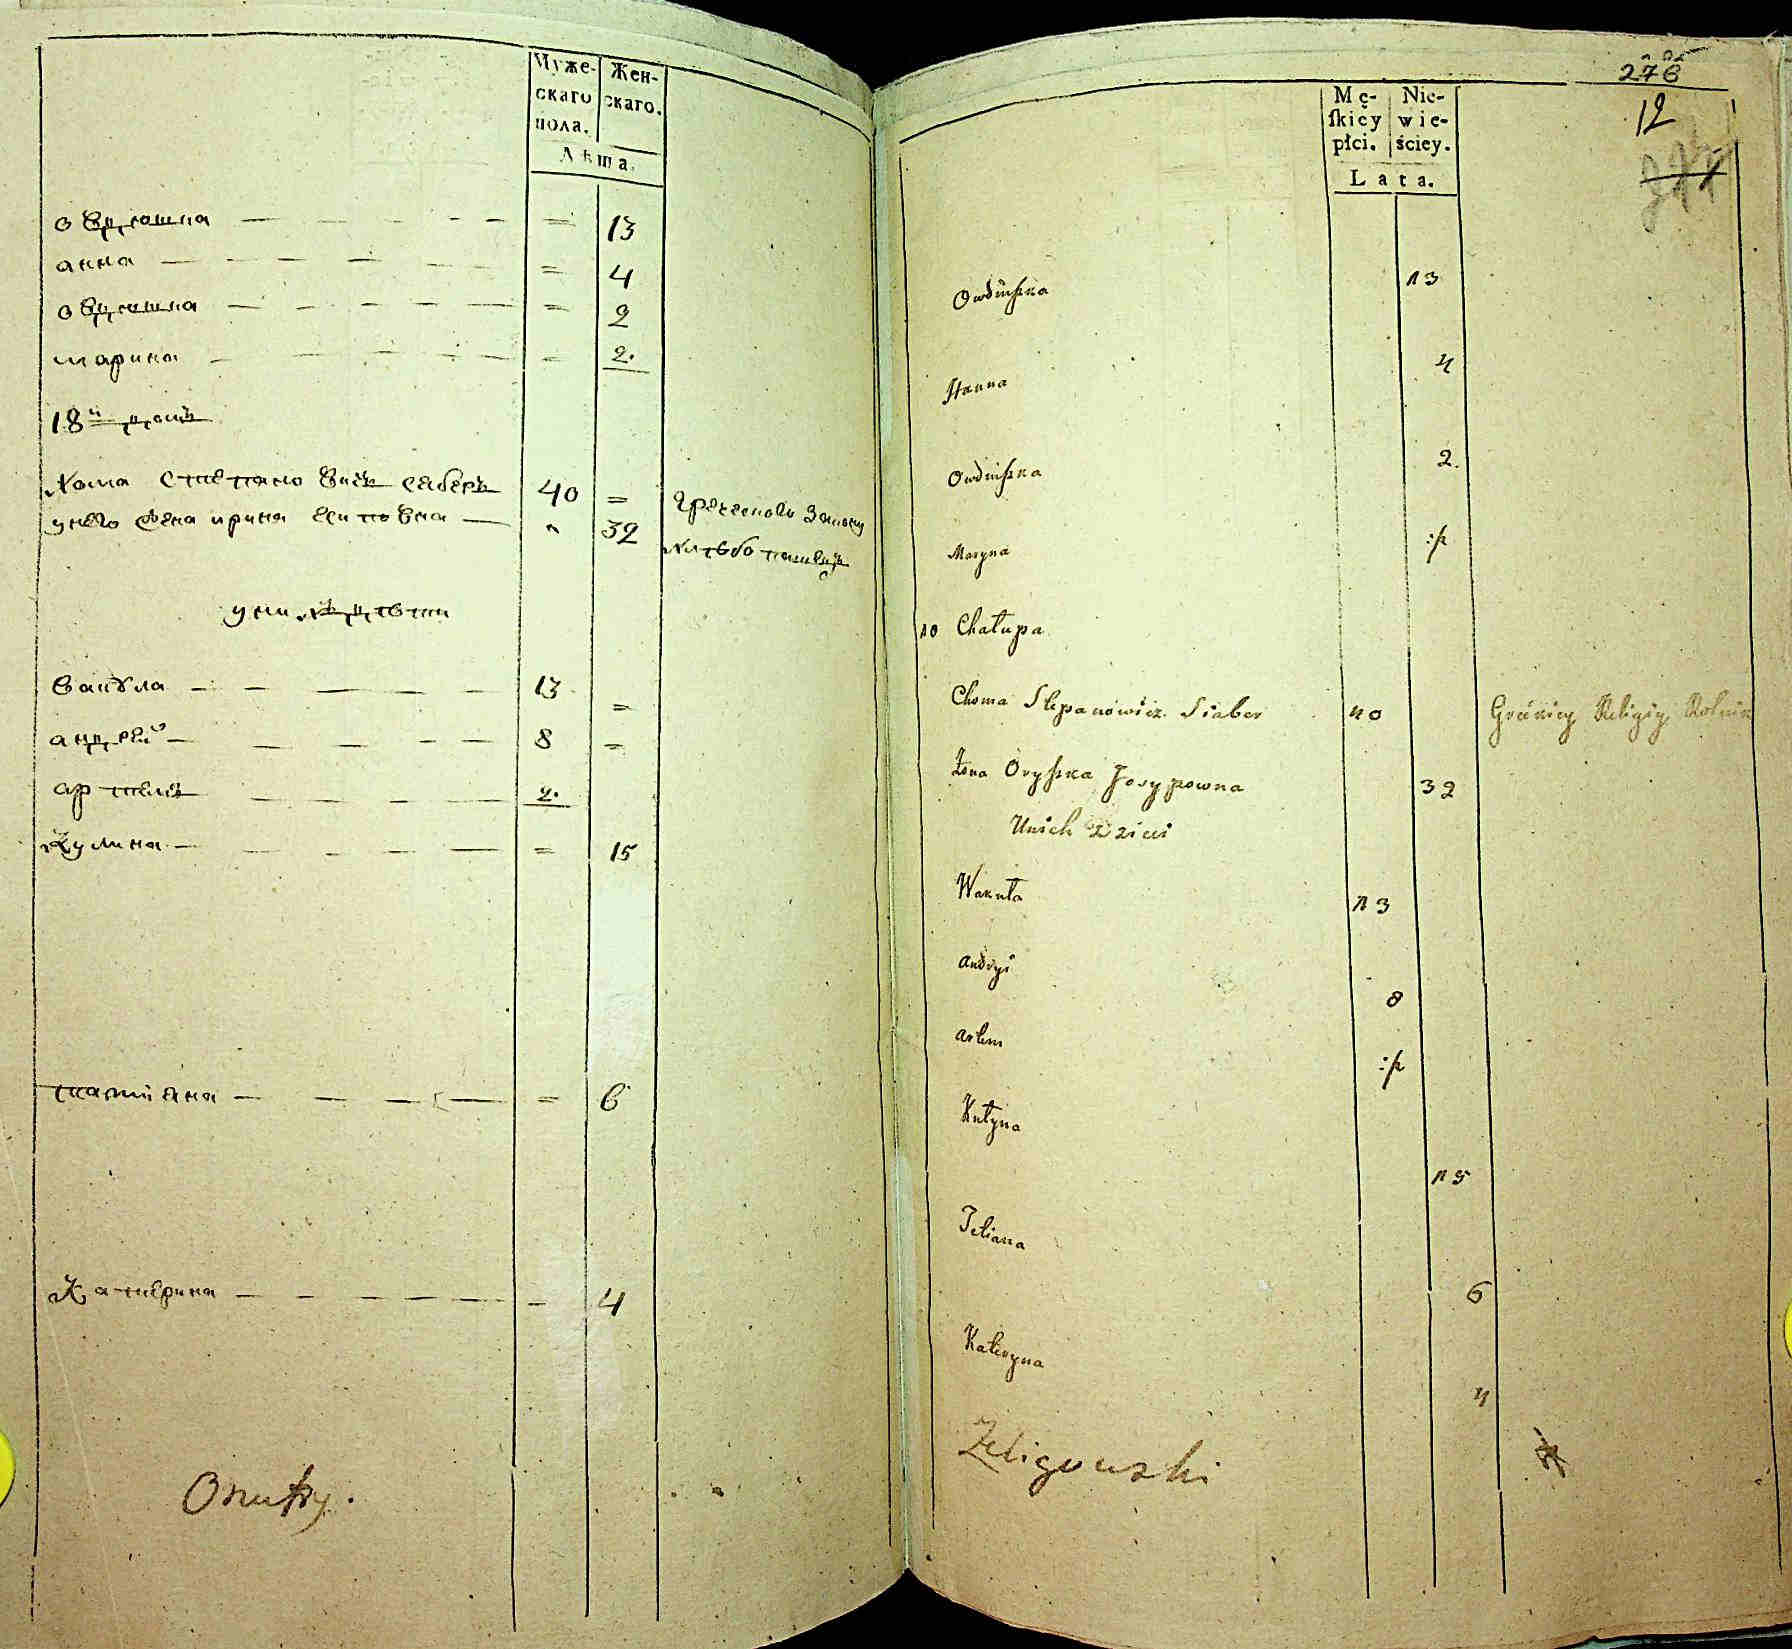 Муже-
скаго
пола.
Жен-
скаго.
Лѣта.
овдюшка 13
анна 4
овдюшка 2
марина 2.
18й домъ
хома степановичъ сяберъ 40 =
унего жена ирина есиповна 32
греческого
хлебопашецъ
уних дети
вакула 13 =
андрей 8 =
артемъ 2.
кулина = 15
татияна = 6
Катерина 4
276
12
Mę-
skiéy
płci.
Nie-
wie-
ściey.
Lata.
Owdiuszka 13
Hanna 4
Owdiuszka 2.
Maryna
10 Chałupa
Choma Stepanowicz Siaber 40 Grеckiey Religiy Rolnik
Żona Oryszka Josypowna 32
Unich Dzieci
Wakuła 13
Andryi 8
Artem
Kułyna 15
Tetiana 6
Kateryna 4
Zeligowski